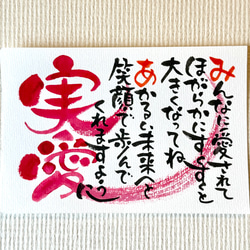 みんなに愛されて
ほがらかにすくすくと
大きくなってね
あかるい未来へと
笑顔で歩んで
くれますよう
実愛